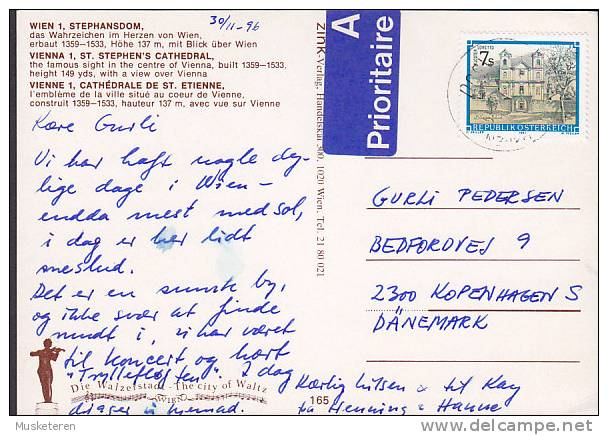 WIEN 1, STEPHANSDOM,
das Wahrzeichen im Herzen von Wien,
erbaut 1359-1533, Höhe 137 m, mit Blick über Wien
VIENNA 1, ST. STEPHEN'S CATHEDRAL,
the famous sight in the centre of Vienna, built 1359-1533,
height 149 yds, with a view over Vienna
VIENNE 1, CATHÉDRALE DE ST. ETIENNE,
l'emblème de la ville situé au coeur de Vienne,
construit 1359-1533, hauteur 137 m, avec vue sur Vienne
30/11-96
Kære Gurli
Vi har haft nogle dej-
lige dage i Wien -
endda mest med sol,
i dag er her lidt
sneslud.
Det er en smuk by,
og ikke svær at finde
rundt i, vi har været
til koncert og hørt
"Tryllefløjten", I dag
Die Walzerstadt - The city of Waltz
WIEN
drager vi hjemad.
Kærlig hilsen & til Kay
fra Henning & Hanne
165
zink-Verlag, Handelskai 300, 1020 Wien, Tel. 21 80 021
A
Prioritaire
7s
REPUBLIK ÖSTERREICH
GURLI PEDERSEN
BEDFORDVEJ 9
2300 KOPENHAGEN S
DÄNEMARK
Musketeren
delcampe.net